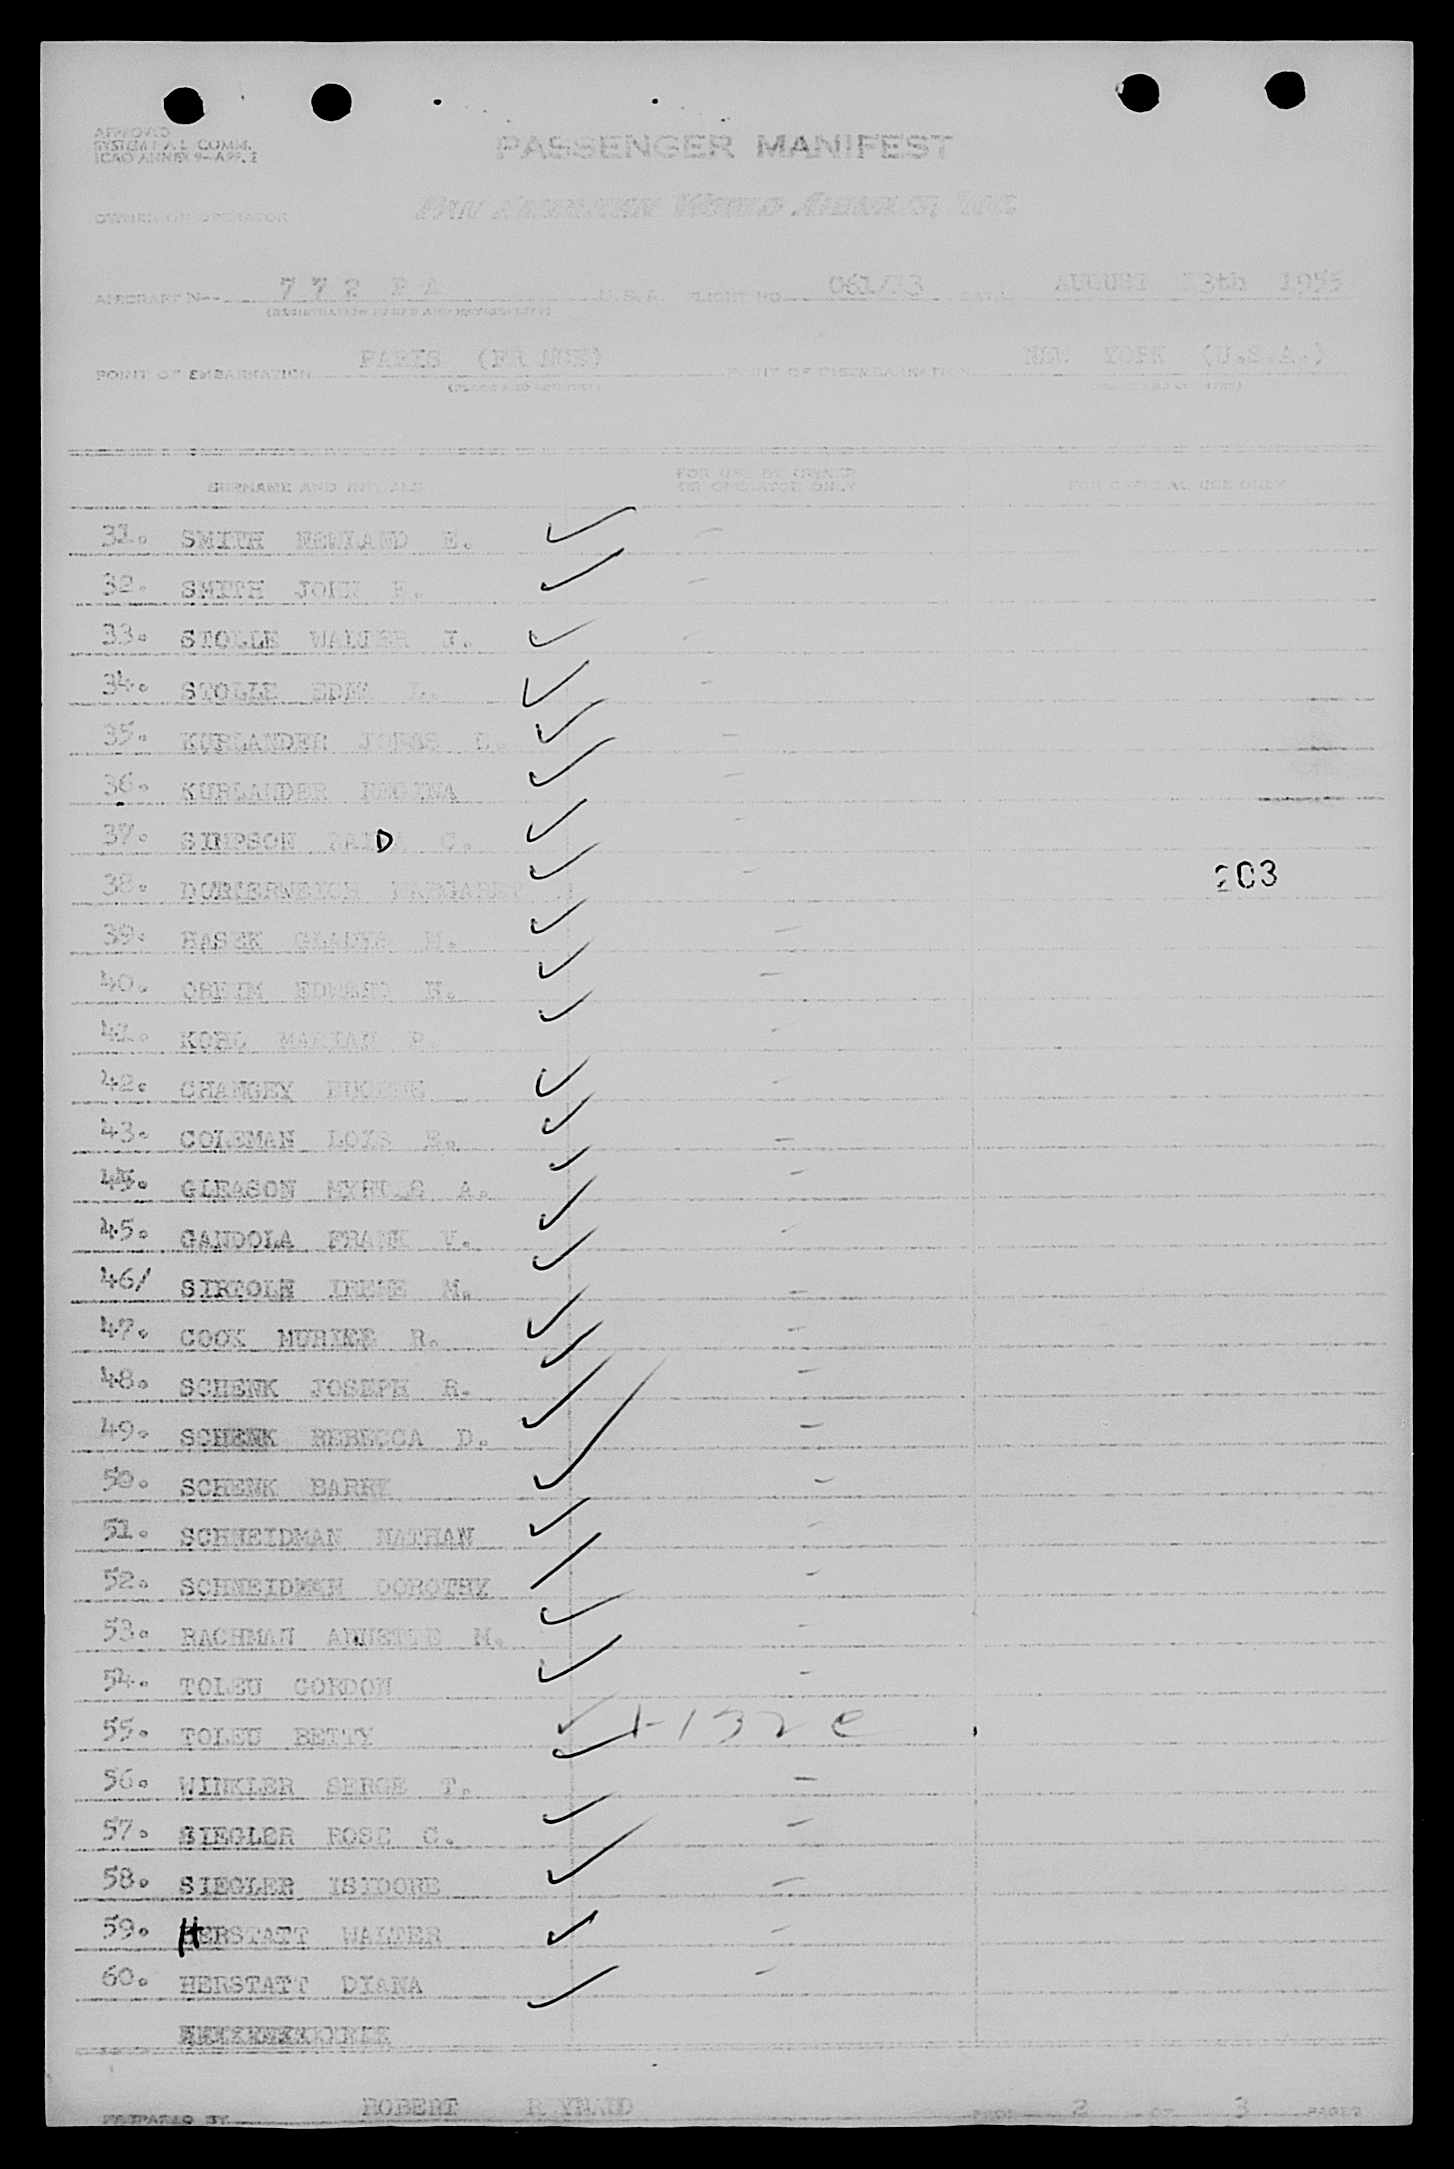 APPROVED
SYSTEM F.A.L. COMM.
ICAO ANNEX 9—APP. 2
PASSENGER MANIFEST
OWNER OR OPERATOR
PAN AMERICAN WORLD AIRWAYS, INC.
AIRCRAFT No. 7 7 2 P A U.S.A. FLIGHT NO. 061/13 DATE AUGUST 13th 1955
(REGISTRATION MARKS AND NATIONALITY)
POINT OF EMBARKATION PARIS (FRANCE) POINT OF DISEMBARKATION NEW YORK (U.S.A.)
(PLACE AND COUNTRY) (PLACE AND COUNTRY)
SURNAME AND INITIALS FOR USE BY OWNER OR OPERATOR ONLY FOR OFFICIAL USE ONLY
31. SMITH E.
32. SMITH JOHN
33. STOLLE WALTER J.
34. STOLLE EDNA
35. KURLANDER
36. KURLANDER REGINA
37. SIMPSON D C.
38. MARGARET 203
39. HASEK GLADYS M.
40. EDWARD H.
41. MARIAN
42. CHANGEY EUGENE
43. COLEMAN LOIS E.
44. GLEASON A.
45. GANDOLA FRANK V.
46/ SIRTOLE IRENE M.
47. COOK MURIEL R.
48. SCHENK JOSEPH R.
49. SCHENK REBECCA D.
50. SCHENK BARRY
51. SCHNEIDMAN NATHAN
52. SCHNEIDMAN DOROTHY
53. RACHMAN M.
54. TOLEU GORDON
55. TOLEU BETTY 1-132 e
56. WINKLER SERGE T.
57. SIEGLER ROSE C.
58. SIEGLER ISIDORE
59. HERSTATT WALTER
60. HERSTATT DIANA
PREPARED BY ROBERT RAYNAUD PAGE 2 OF 3 PAGES